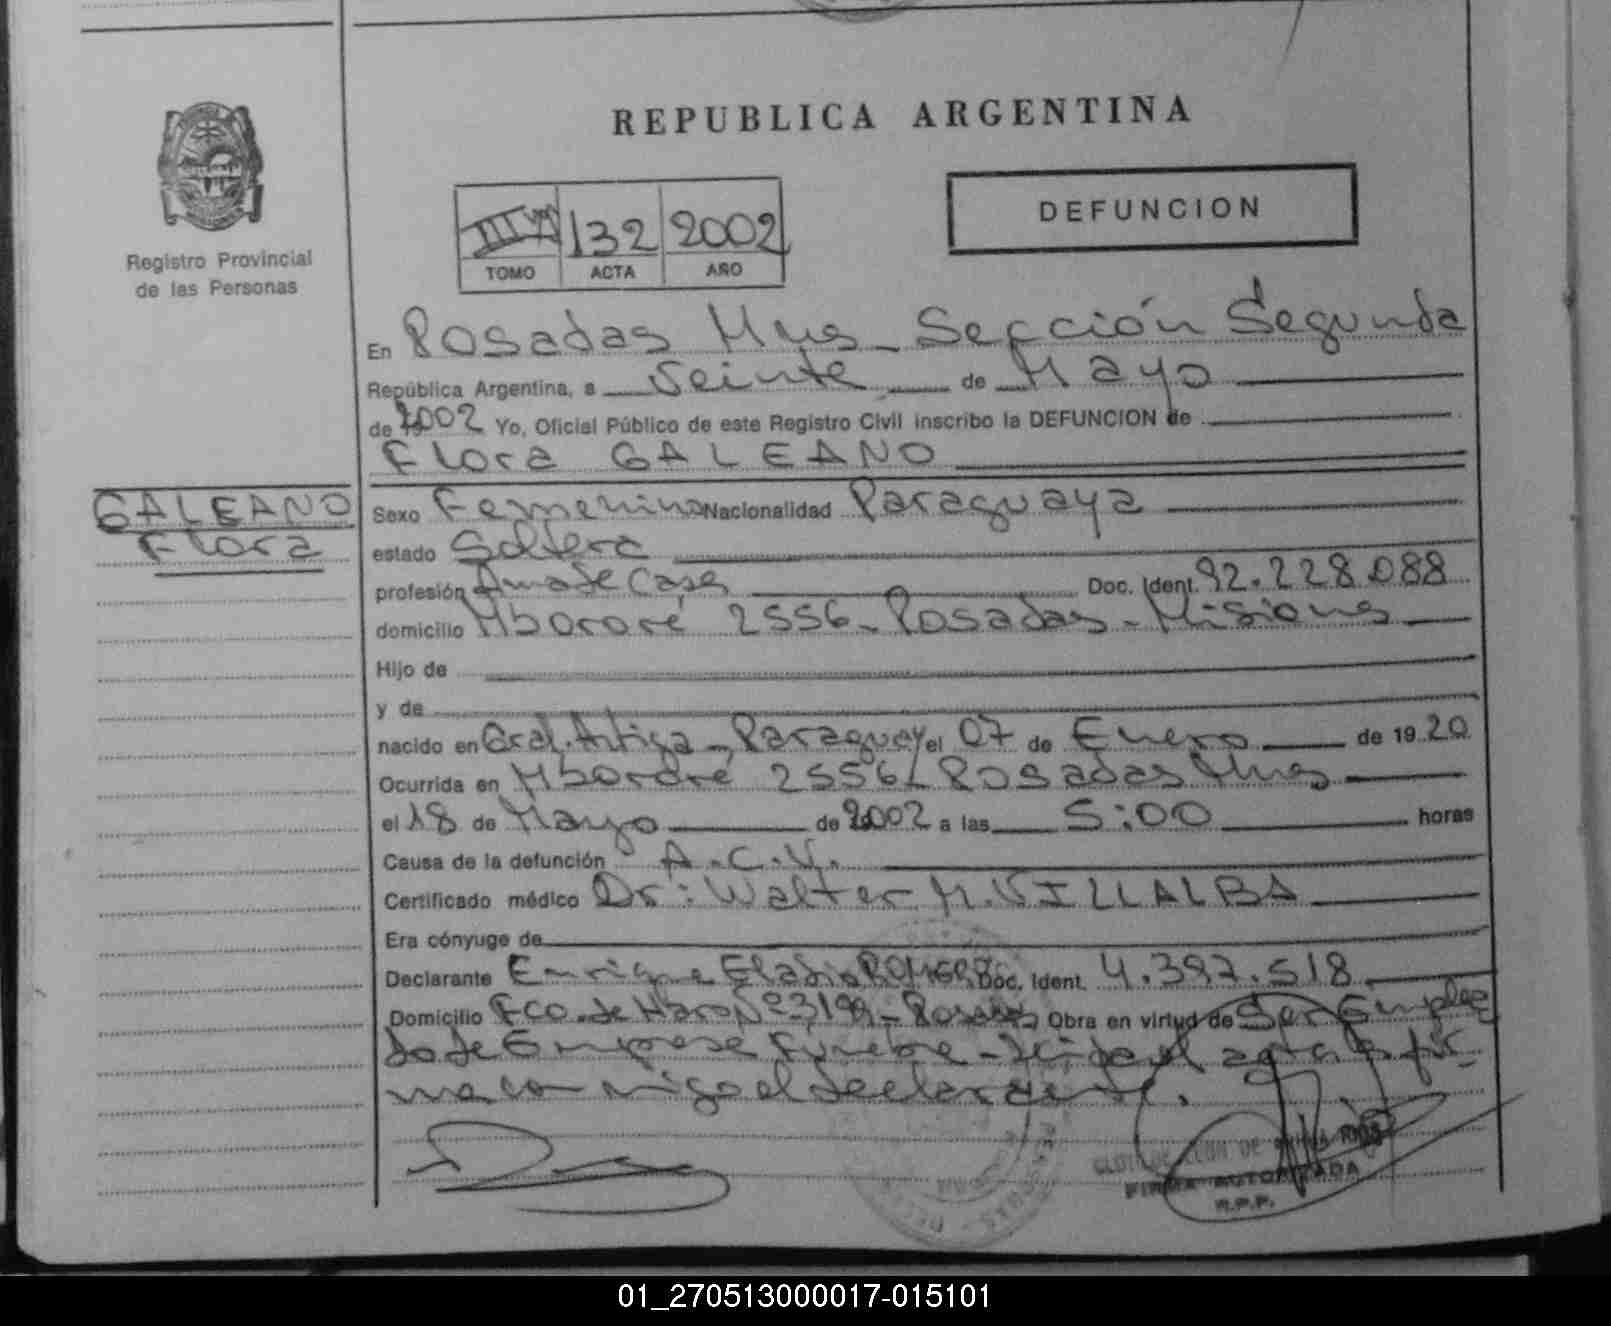 REPUBLICA ARGENTINA
DEFUNCION
132 2002
TOMO ACTA AÑO
Registro Provincial
de las Personas
En Posadas Mnes - Sección Segunda
República Argentina, a Veinte de Mayo
de 2002 Yo, Oficial Público de este Registro Civil inscribo la DEFUNCION de
Flora GALEANO
GALEANO
Flora
Sexo Femenino Nacionalidad Paraguaya
estado Soltera
profesión Ama de Casa Doc. Ident. 92.228.088
domicilio Mbororé 2556 - Posadas - Misiones
Hijo de
y de
nacido en Gral. Artiga - Paraguay el 07 de Enero de 1920
Ocurrida en Mbororé 2556 - Posadas Mnes
el 18 de Mayo de 2002 a las 5:00 horas
Causa de la defunción A.C.V.
Certificado médico Dr: Walter M. VILLALBA
Era cónyuge de
Declarante Enrique Eladio ROMERO Doc. Ident. 4.397.518
Domicilio Fco. de Haro Nº 3199 - Posadas Obra en virtud de Ser Emplea
do de Empresa Funebre - Leida el acta la fir
ma conmigo el declarante.
DE RIOS
FIRMA AUTORIZADA
R.P.P.
01_270513000017-015101